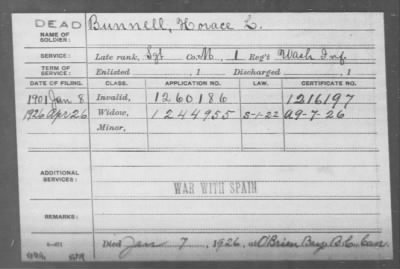 DEAD
NAME OF SOLDIER: Bunnell, Horace L.
SERVICE: Late rank, Sgt Co. M, 1 Reg't Wash Inf.
TERM OF SERVICE: Enlisted , 1 Discharged , 1
DATE OF FILING. CLASS. APPLICATION NO. LAW. CERTIFICATE NO.
1901 Jan 8 Invalid, 1260186 1216197
1926 Apr 26 Widow, 1244955 5-1-22 A9-7-26
Minor,
ADDITIONAL SERVICES:
WAR WITH SPAIN
REMARKS:
Died Jan 7, 1926, at O'Brien Bay B.C. Can.